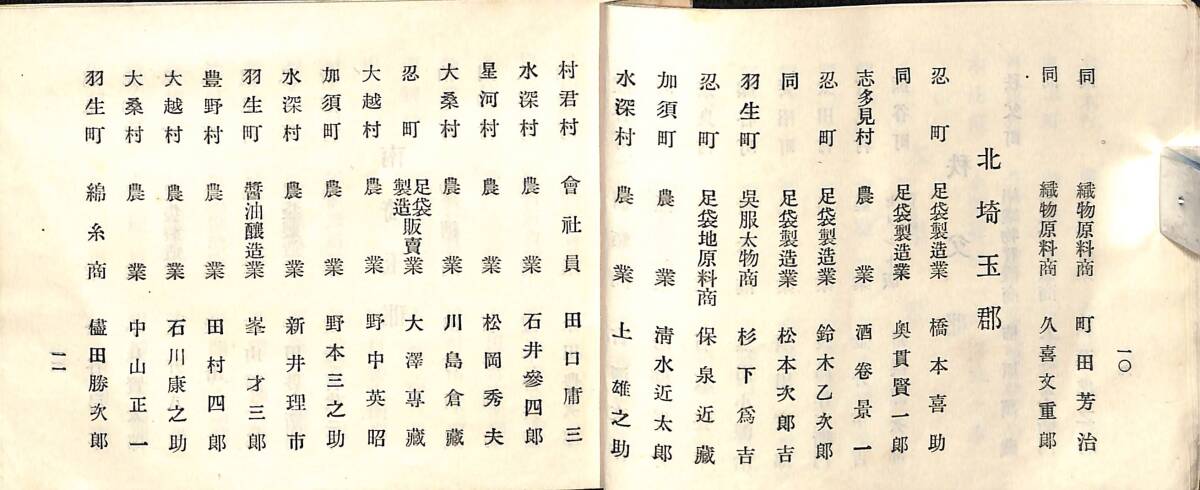 一〇
同 織物原料商 町田芳治
同 織物原料商 久喜文重郎
北埼玉郡
忍町 足袋製造業 橋本喜助
同 足袋製造業 奥貫賢一郎
志多見村 農業 酒卷景一
忍町 足袋製造業 鈴木乙次郎
同 足袋製造業 松本次郎吉
羽生町 呉服太物商 杉下爲吉
忍町 足袋地原料商 保泉近藏
加須町 農業 淸水近太郎
水深村 農業 土雄之助
村君村 會社員 田口庸三
水深村 農業 石井參四郎
星河村 農業 松岡秀夫
大桑村 農業 川島倉藏
忍町 足袋製造販賣業 大澤專藏
大越村 農業 野中英昭
加須町 農業 野本三之助
水深村 農業 新井理市
羽生町 醬油釀造業 峯才三郎
豊野村 農業 田村四郎
大越村 農業 石川康之助
大桑村 農業 中山正一
羽生町 綿糸商 儘田勝次郎
一一